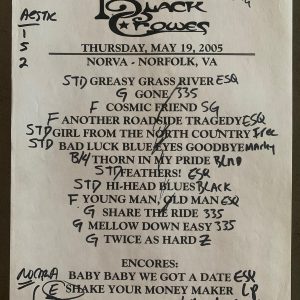 BLACK
CROWES
AESTIC
1
5
2
THURSDAY, MAY 19, 2005
NORVA - NORFOLK, VA
STD GREASY GRASS RIVER ESQ
G GONE 335
F COSMIC FRIEND SG
F ANOTHER ROADSIDE TRAGEDY ESQ
STD GIRL FROM THE NORTH COUNTRY Free
STD BAD LUCK BLUE EYES GOODBYE Marky
B/4 THORN IN MY PRIDE BLND
STD FEATHERS! ESQ
STD HI-HEAD BLUES BLACK
F YOUNG MAN, OLD MAN ESQ
G SHARE THE RIDE 335
G MELLOW DOWN EASY 335
G TWICE AS HARD Z
ENCORES:
BABY BABY WE GOT A DATE ESQ
E SHAKE YOUR MONEY MAKER LP